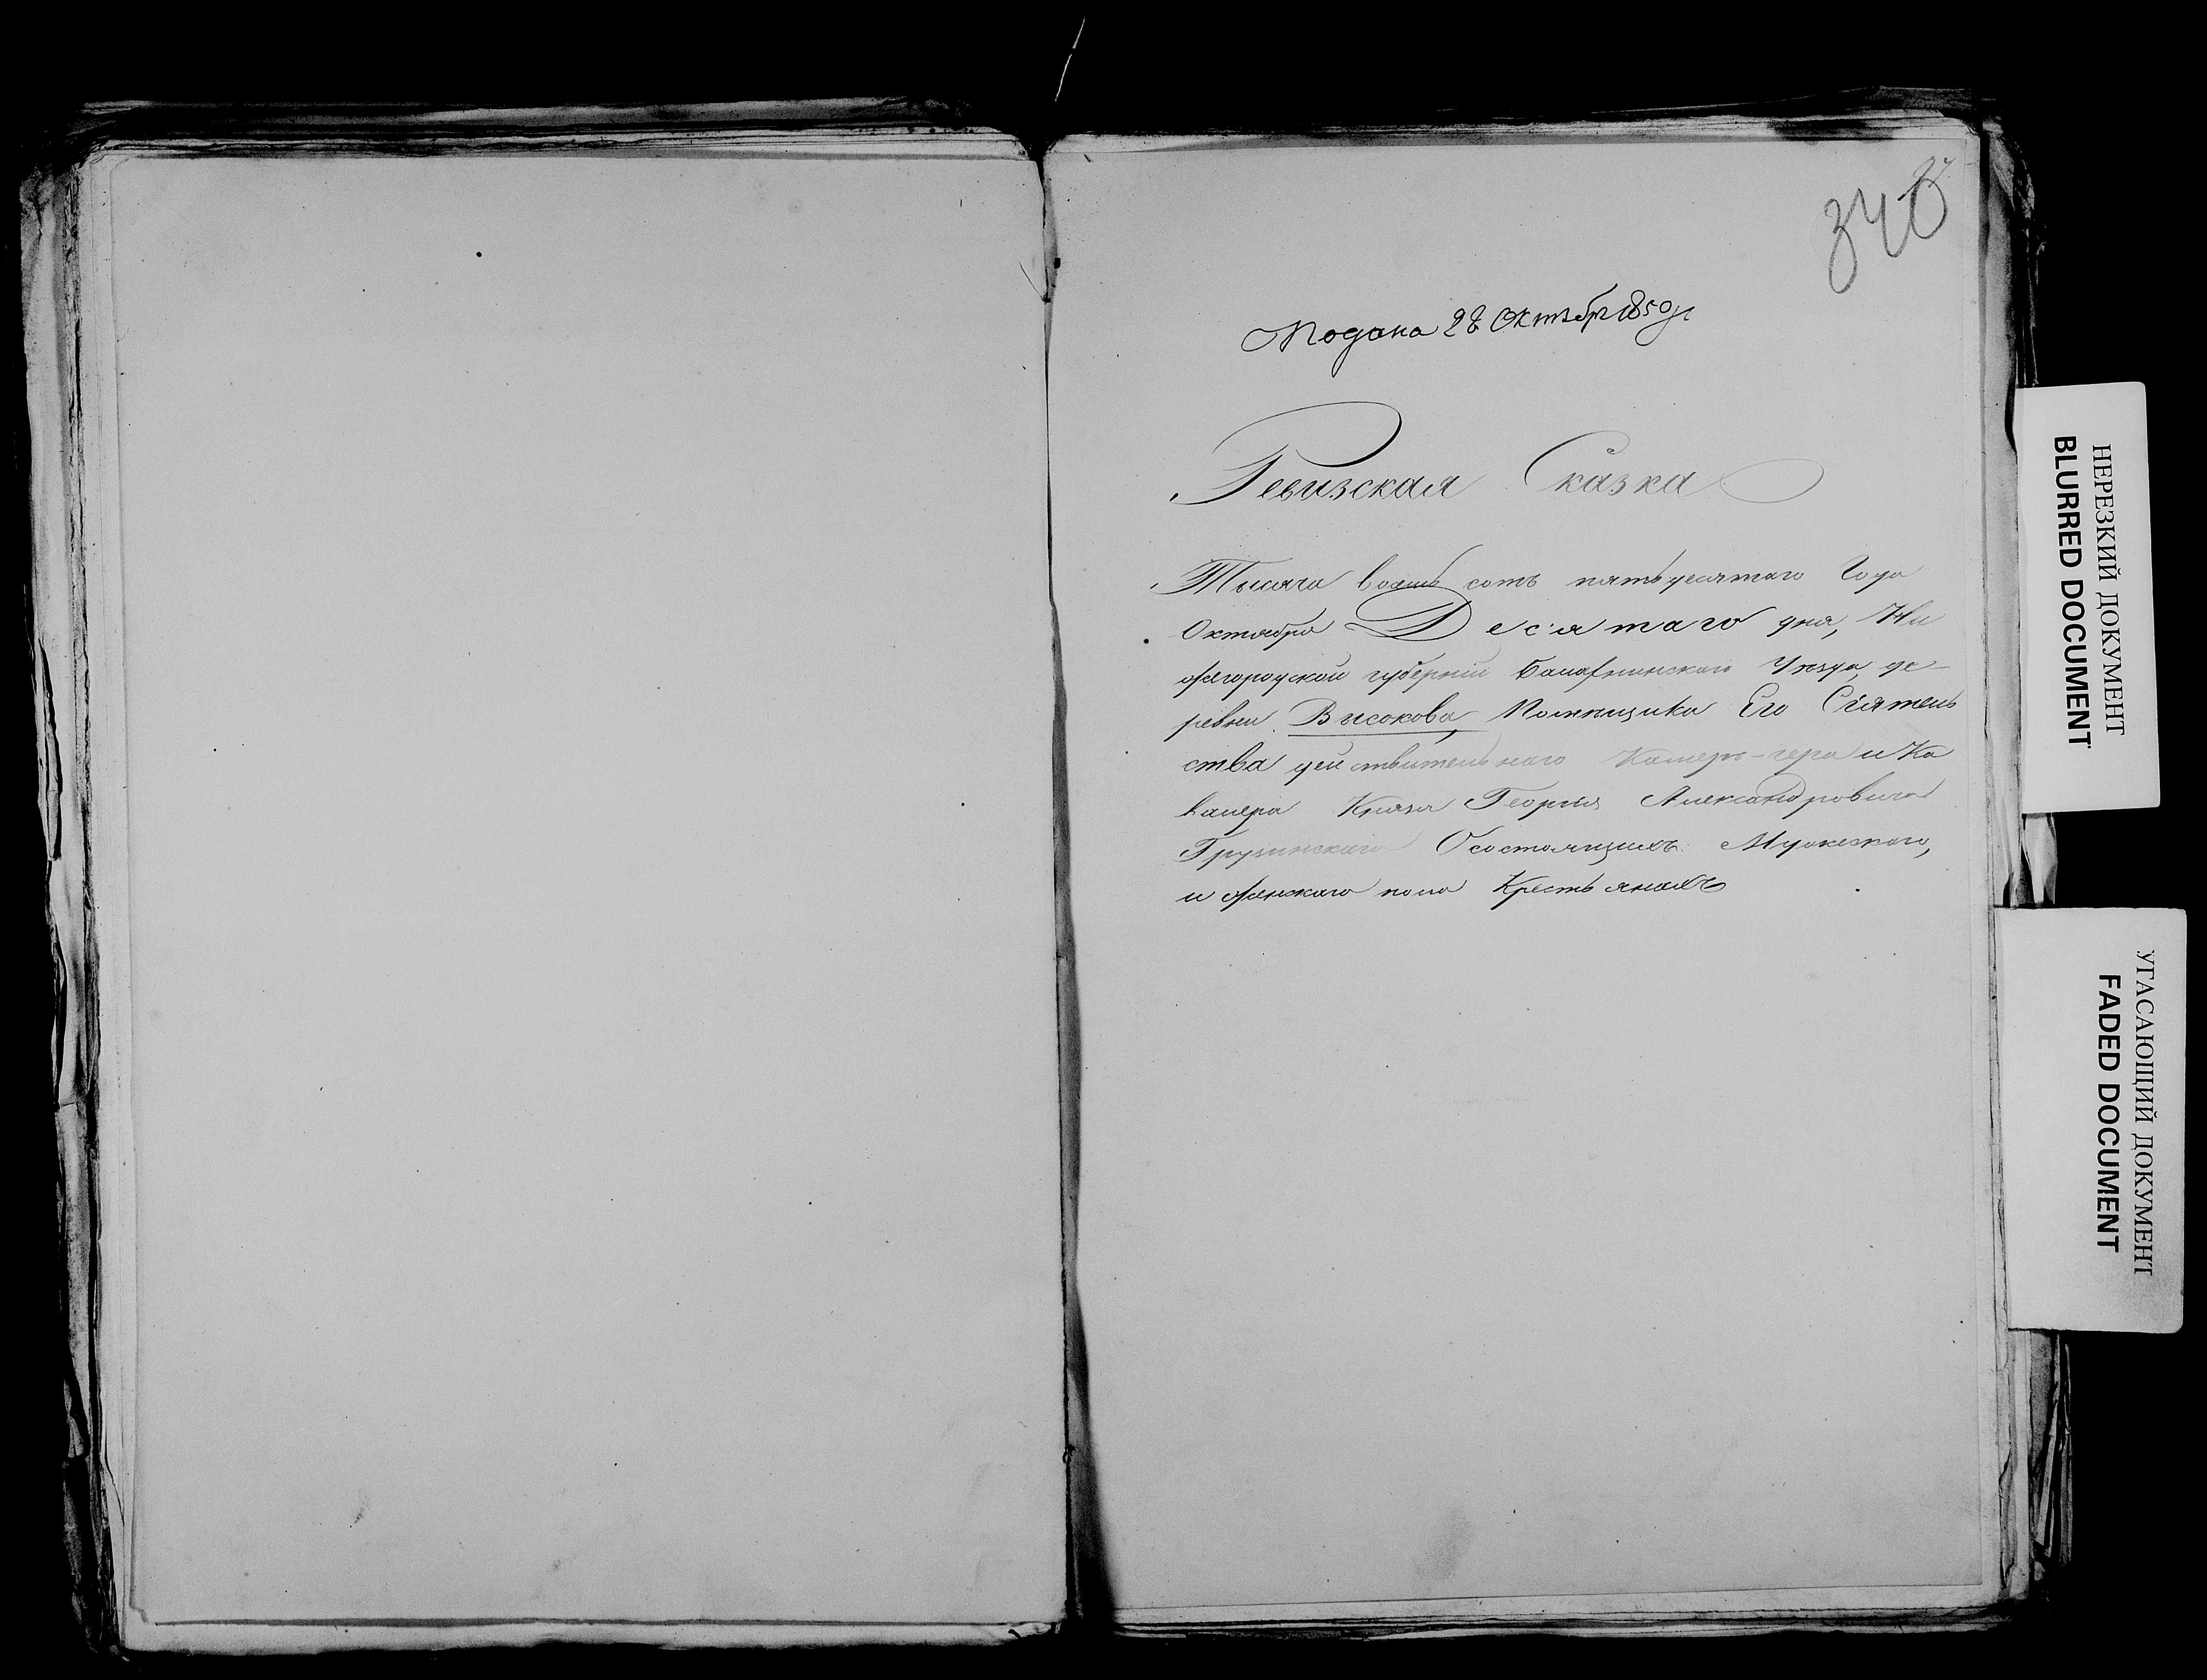 Подана 28 Октября 1850 г
Ревизская Сказка
Тысяча восемь сотъ пятьдесятаго Года
Октября Десятаго дня, Ни
жегородской губернiи Балахнинскаго Уѣзда, де-
ревни Высокова, Помѣщика Его Сiятель
ства действительнаго Камеръ-гера и Ка
валера Князя Георгiя Александровича
Грузинскаго О состоящихъ Мужескаго,
и женскаго пола Крестьянахъ
НЕРЕЗКИЙ ДОКУМЕНТ
BLURRED DOCUMENT
УГАСАЮЩИЙ ДОКУМЕНТ
FADED DOCUMENT